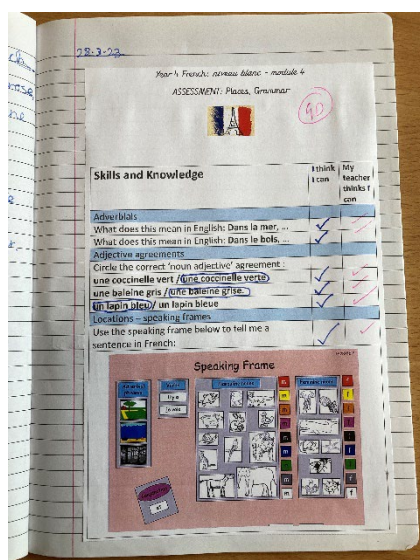 28.3.23
Year 4 French: niveau blanc - module 4
ASSESSMENT: Places, Grammar
Skills and Knowledge
I think I can
My teacher thinks I can
Adverbials
What does this mean in English: Dans la mer, ...
What does this mean in English: Dans le bois, ...
Adjective agreements
Circle the correct 'noun adjective' agreement :
une coccinelle vert / une coccinelle verte
une baleine gris / une baleine grise.
un lapin bleu / un lapin bleue
Locations – speaking frames
Use the speaking frame below to tell me a
sentence in French:
Speaking Frame
il y a
et